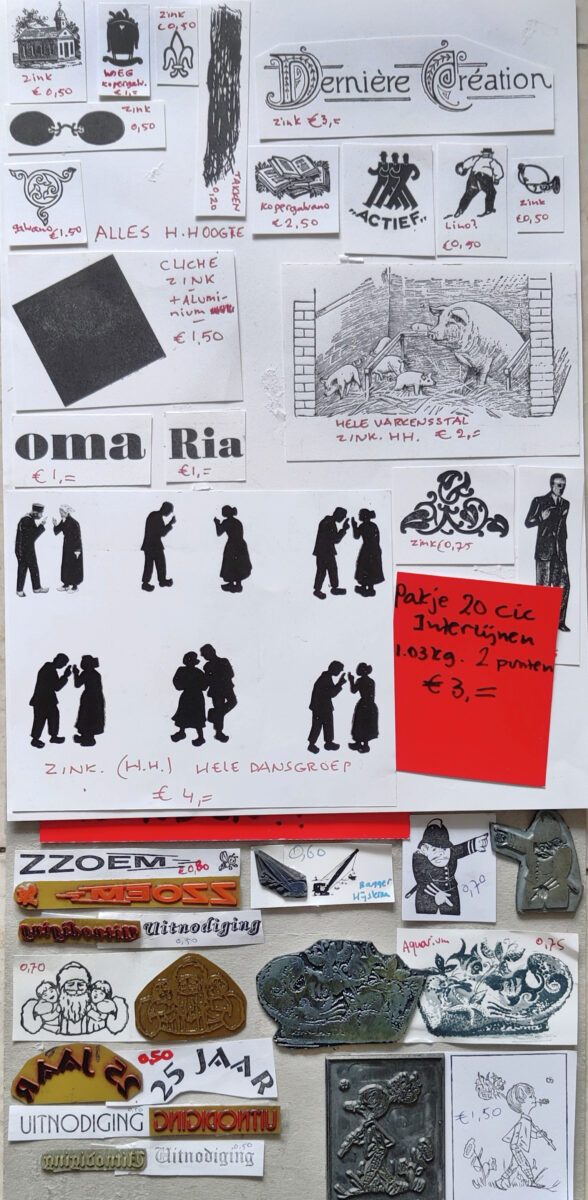 Zink
€ 0,50
WEG
Kopergalv.
€ 1,=
Zink
€ 0,50
Dernière Création
Zink €3,=
Zink
0,50
TAKKEN
0,20
Galvano €1.50
ALLES H. HOOGTE
Kopergalvano
€ 2,50
„ACTIEF”
Lino?
€0,50
Zink
€0,50
CLICHE
ZINK
+ Alumi-
nium
€ 1,50
HELE VARKENSSTAL
ZINK. HH. € 2,=
oma
€ 1,=
Ria
€1,=
Zink €0,75
Pakje 20 cic
Interlijnen
1.03kg. 2 punten
€ 3,=
ZINK. (H.H.) HELE DANSGROEP
€ 4,=
ZZOEM
€0,80
ZZOEM
0,60
Bagger
Hijskran
0,70
Uitnodiging
Uitnodiging
0,50
0,70
Aquarium
0,75
25 JAAR
0,50
25 JAAR
UITNODIGING
UITNODIGING
Uitnodiging
Uitnodiging
0,50
€1,50